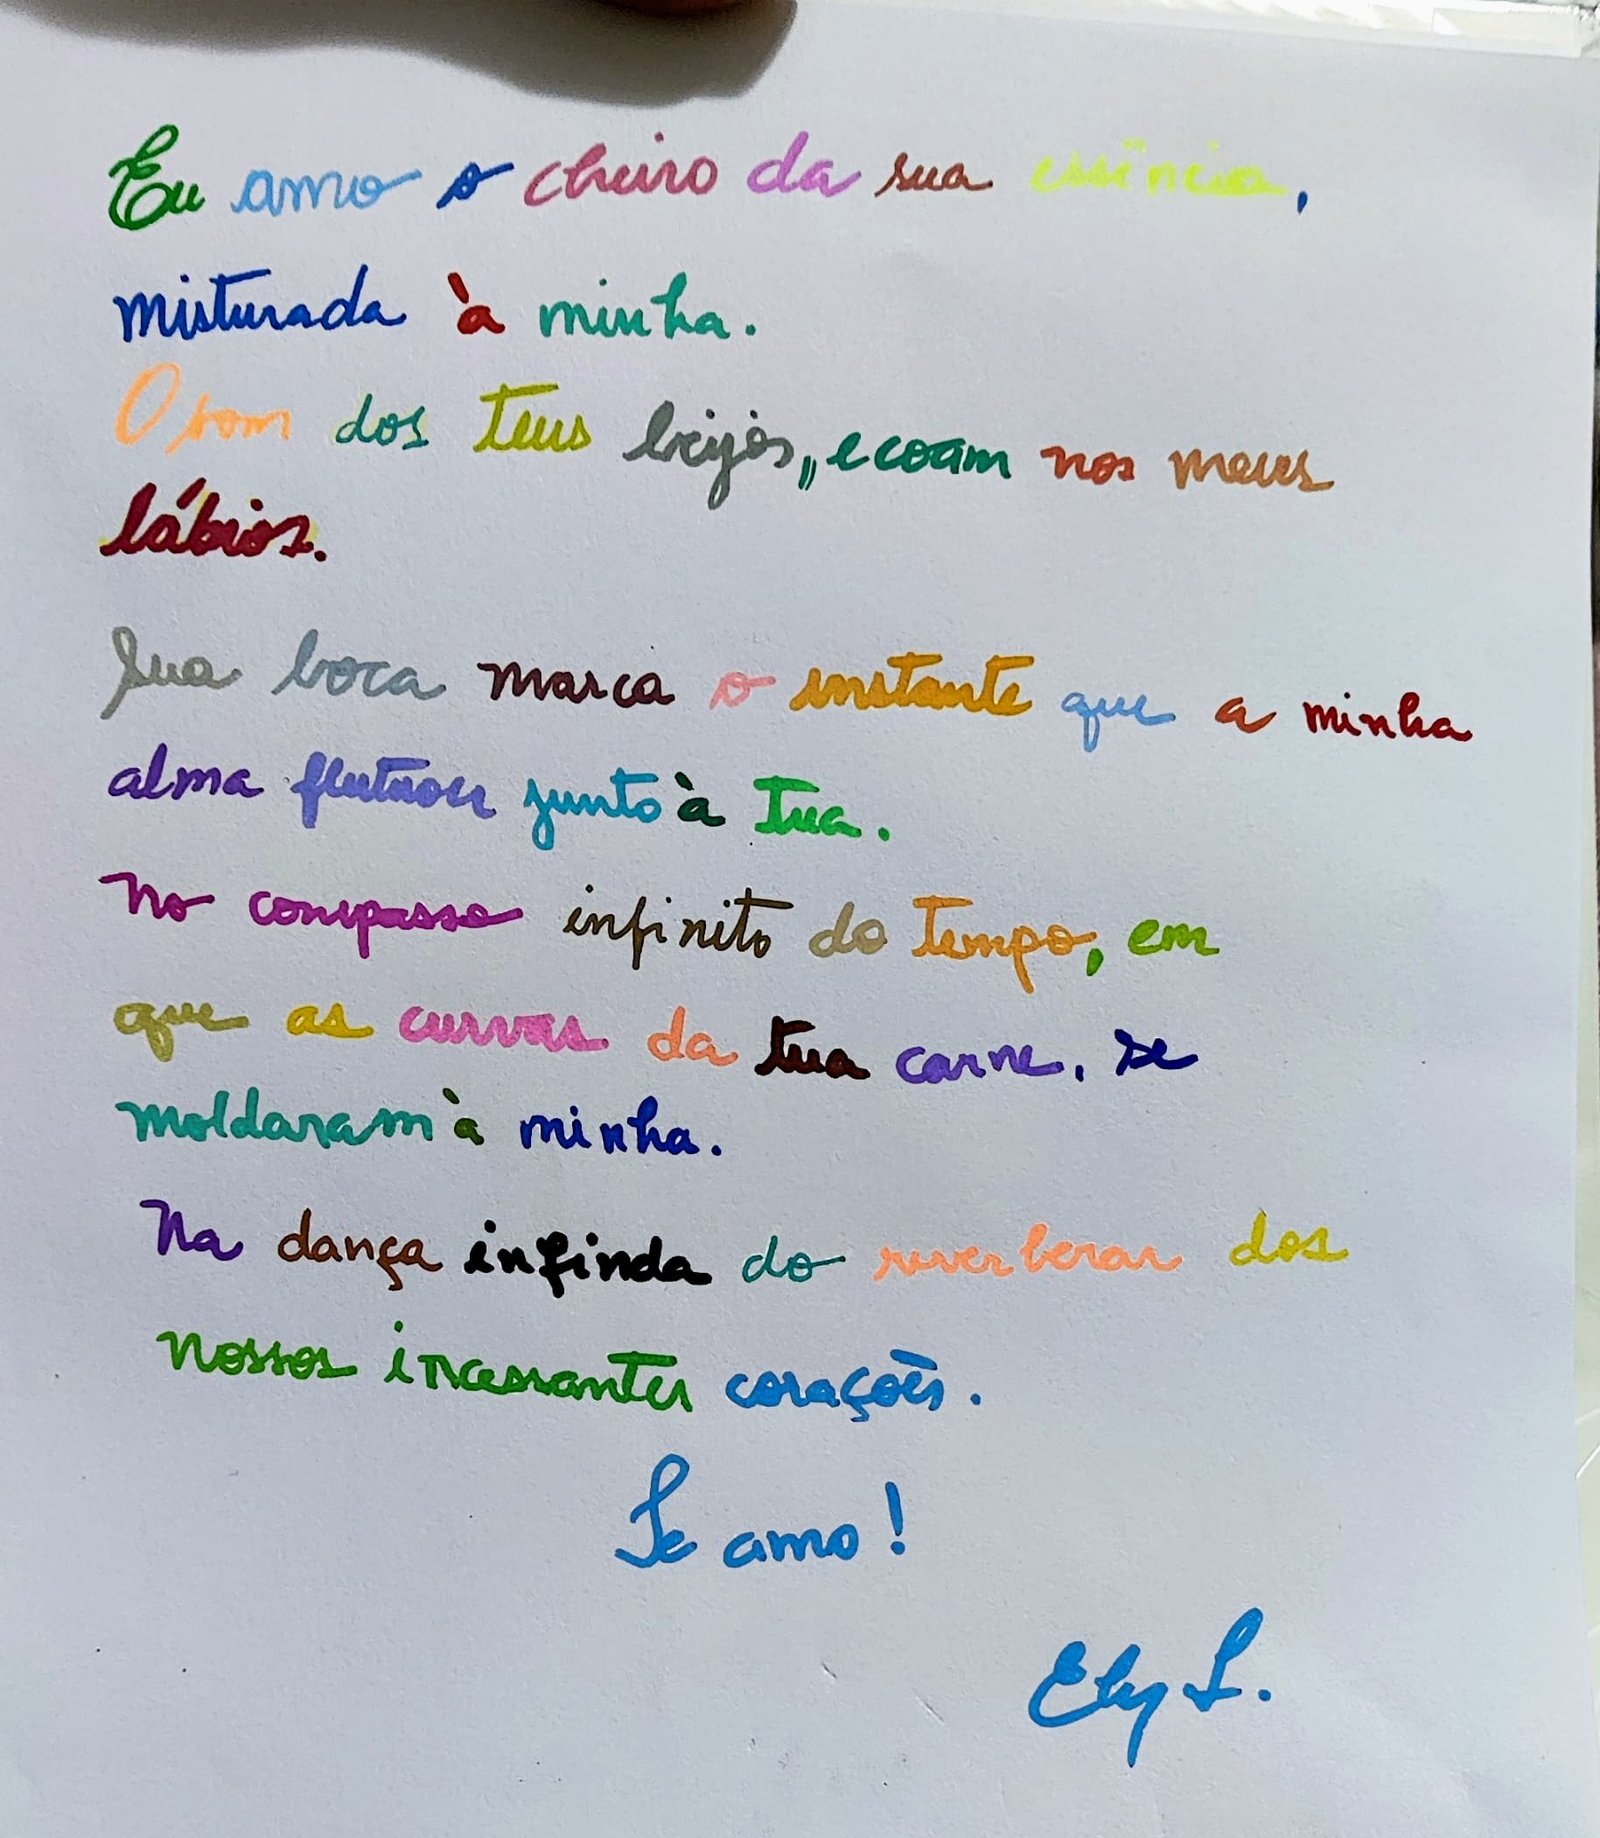 Eu amo o cheiro da sua essência,
misturada à minha.
O som dos teus beijos,, ecoam nos meus
lábios.
Sua boca marca o instante que a minha
alma flutuou junto à tua.
No compasso infinito do tempo, em
que as curvas da tua carne, se
moldaram à minha.
Na dança infinda do reverberar dos
nossos incessantes corações.
Te amo!
Ely L.